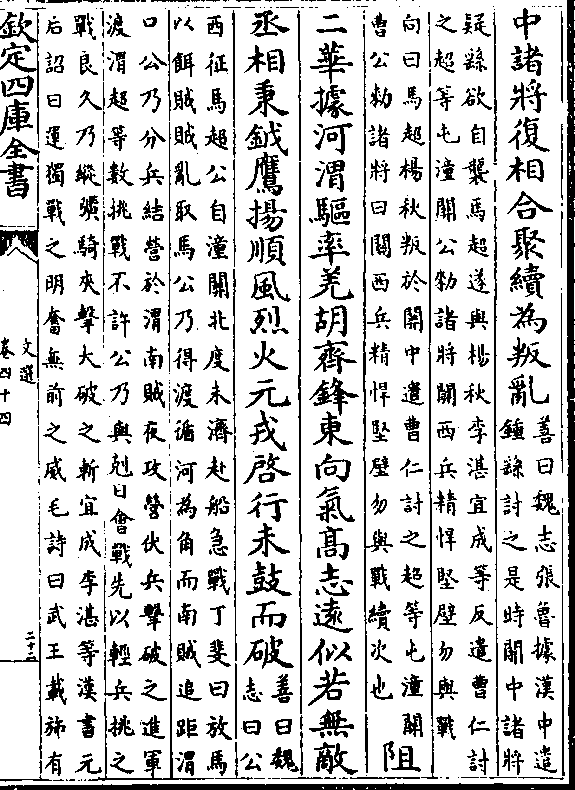 中諸將復相合聚續為叛亂善曰魏志張魯據漢中遣
鍾繇討之是時關中諸將
疑繇欲自襲馬超遂與楊秋李湛宜成等反遣曹仁討
之超等屯潼關公勑諸將關西兵精悍堅壁勿與戰
向曰馬超楊秋叛於關中遣曹仁討之超等屯潼關
曹公勑諸將曰關西兵精悍堅壁勿與戰續次也
阻
二華據河渭驅率羌胡齊鋒東向氣髙志遠似若無敵
丞相秉鉞鷹揚順風烈火元戎啓行未鼓而破善曰魏
志曰公
西征馬超公自潼關北度未濟赴船急戰丁斐曰放馬
以餌賊賊亂取馬公乃得渡循河為角而南賊追距渭
口公乃分兵結營於渭南賊夜攻營伏兵擊破之進軍
渡渭超等數挑戰不許公乃與剋日會戰先以輕兵挑之
戰良久乃縱驍騎夾擊大破之斬宜成李湛等漢書元
后詔曰運獨戰之明奮無前之威毛詩曰武王載斾有
欽定四庫全書
文選
卷四十四
二十二